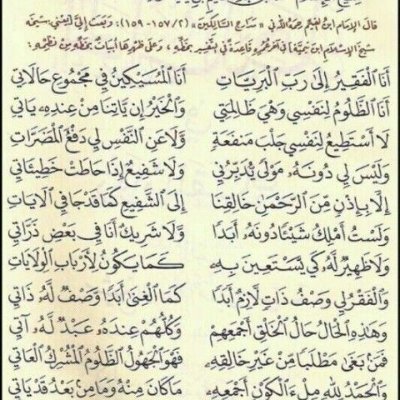 قال الإمام ابن القيم رحمه الله في «مدارج السالكين» (٢/١٥٧-١٥٩): وبعث إليَّ (يعني: شيخه
شيخ الإسلام ابن تيمية) في آخر عمره قاعدة في التفسير بخطه، وعلى ظهرها أبيات بخطه من نظمه:
أَنَا الْفَقِيرُ إِلَى رَبِّ الْبَرِيَّاتِ أَنَا الْمُسَيْكِينُ فِي مَجْمُوعِ حَالَاتِي
أَنَا الظَّلُومُ لِنَفْسِي وَهِيَ ظَالِمَتِي وَالْخَيْرُ إِنْ يَأْتِنَا مِنْ عِنْدِهِ يَاتِي
لَا أَسْتَطِيعُ لِنَفْسِي جَلْبَ مَنْفَعَةٍ وَلَا عَنِ النَّفْسِ لِي دَفْعُ الْمَضَرَّاتِ
وَلَيْسَ لِي دُونَهُ مَوْلًى يُدَبِّرُنِي وَلَا شَفِيعٌ إِذَا حَاطَتْ خَطِيئَاتِي
إِلَّا بِإِذْنٍ مِنَ الرَّحْمَنِ خَالِقِنَا إِلَى الشَّفِيعِ كَمَا قَدْ جَا فِي الْآيَاتِ
وَلَسْتُ أَمْلِكُ شَيْئًا دُونَهُ أَبَدًا وَلَا شَرِيكٌ أَنَا فِي بَعْضِ ذَرَّاتِي
وَلَا ظَهِيرٌ لَهُ كَيْ يَسْتَعِينَ بِهِ كَمَا يَكُونُ لِأَرْبَابِ الْوِلَايَاتِ
وَالْفَقْرُ لِي وَصْفُ ذَاتٍ لَازِمٌ أَبَدًا كَمَا الْغِنَى أَبَدًا وَصْفٌ لَهُ ذَاتِي
وَهَذِهِ الْحَالُ حَالُ الْخَلْقِ أَجْمَعِهِمْ وَكُلُّهُمْ عِنْدَهُ عَبْدٌ لَهُ آتِي
فَمَنْ بَغَى مَطْلَبًا مِنْ غَيْرِ خَالِقِهِ فَهْوَ الْجَهُولُ الظَّلُومُ الْمُشْرِكُ الْعَاتِي
وَالْحَمْدُ لِلهِ مِلْءَ الْكَوْنِ أَجْمَعِهِ مَا كَانَ مِنْهُ وَمَا مِنْ بَعْدُ قَدْ يَاتِي